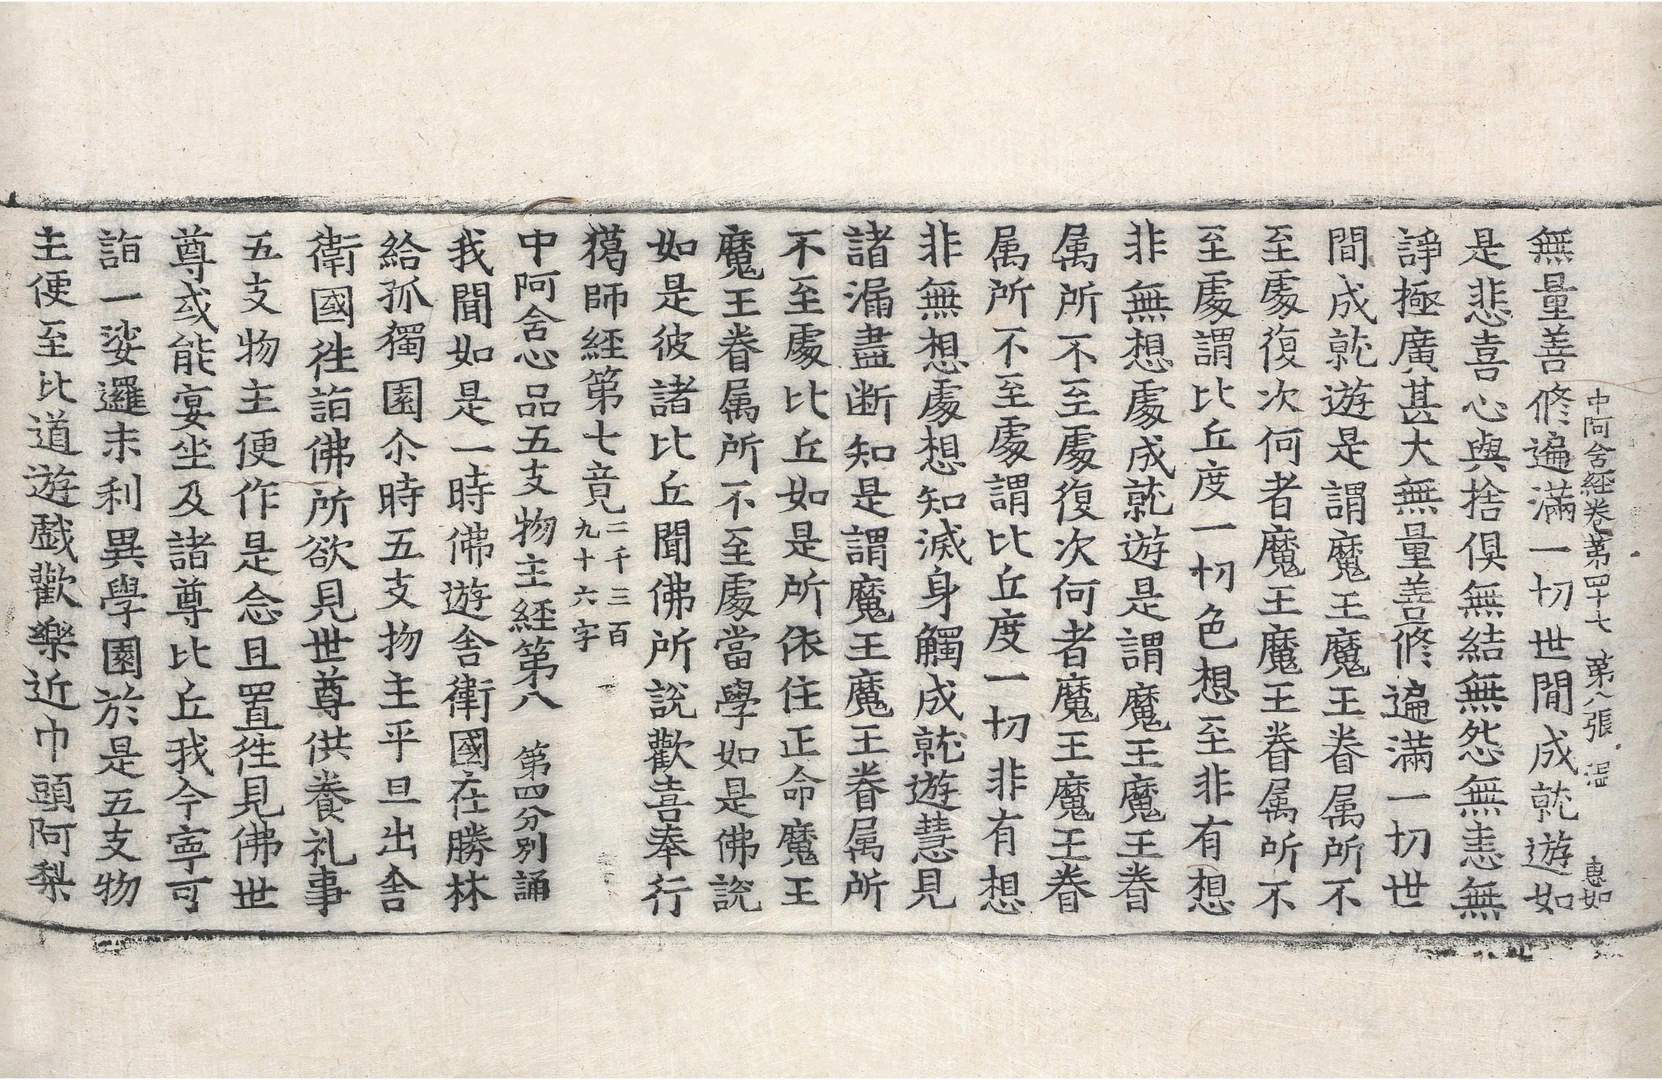 中阿含経卷第四十七 第八張 温 惠如
無量善修遍滿一切世間成就遊如
是悲喜心與捨俱無結無怨無恚無
諍極廣甚大無量善修遍滿一切世
間成就遊是謂魔王魔王眷属所不
至處復次何者魔王魔王眷属所不
至處謂比丘度一切色想至非有想
非無想處成就遊是謂魔王魔王眷
属所不至處復次何者魔王魔王眷
属所不至處謂比丘度一切非有想
非無想處想知滅身觸成就遊慧見
諸漏盡断知是謂魔王魔王眷属所
不至處比丘如是所依住正命魔王
魔王眷属所不至處當學如是佛説
如是彼諸比丘聞佛所説歡喜奉行
獦師経第七竟二千三百九十六字
中阿含心品五支物主経第八 第四分別誦
我聞如是一時佛遊舎衛國在勝林
給孤獨園尒時五支物主平旦出舎
衛國徃詣佛所欲見世尊供養礼事
五支物主便作是念且置徃見佛世
尊或能宴坐及諸尊比丘我今寧可
詣一娑邏末利異學園於是五支物
主便至比道遊戲歡樂近巾頭阿梨